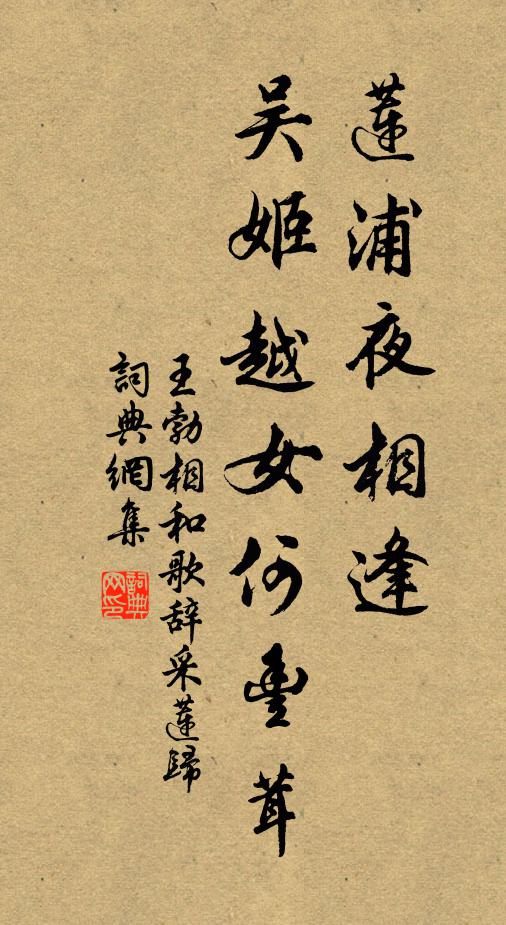 蓮浦夜相逢
吴姬越女何豊茸
王勃相和歌辞采蓮歸
詞典網集
詞典网印